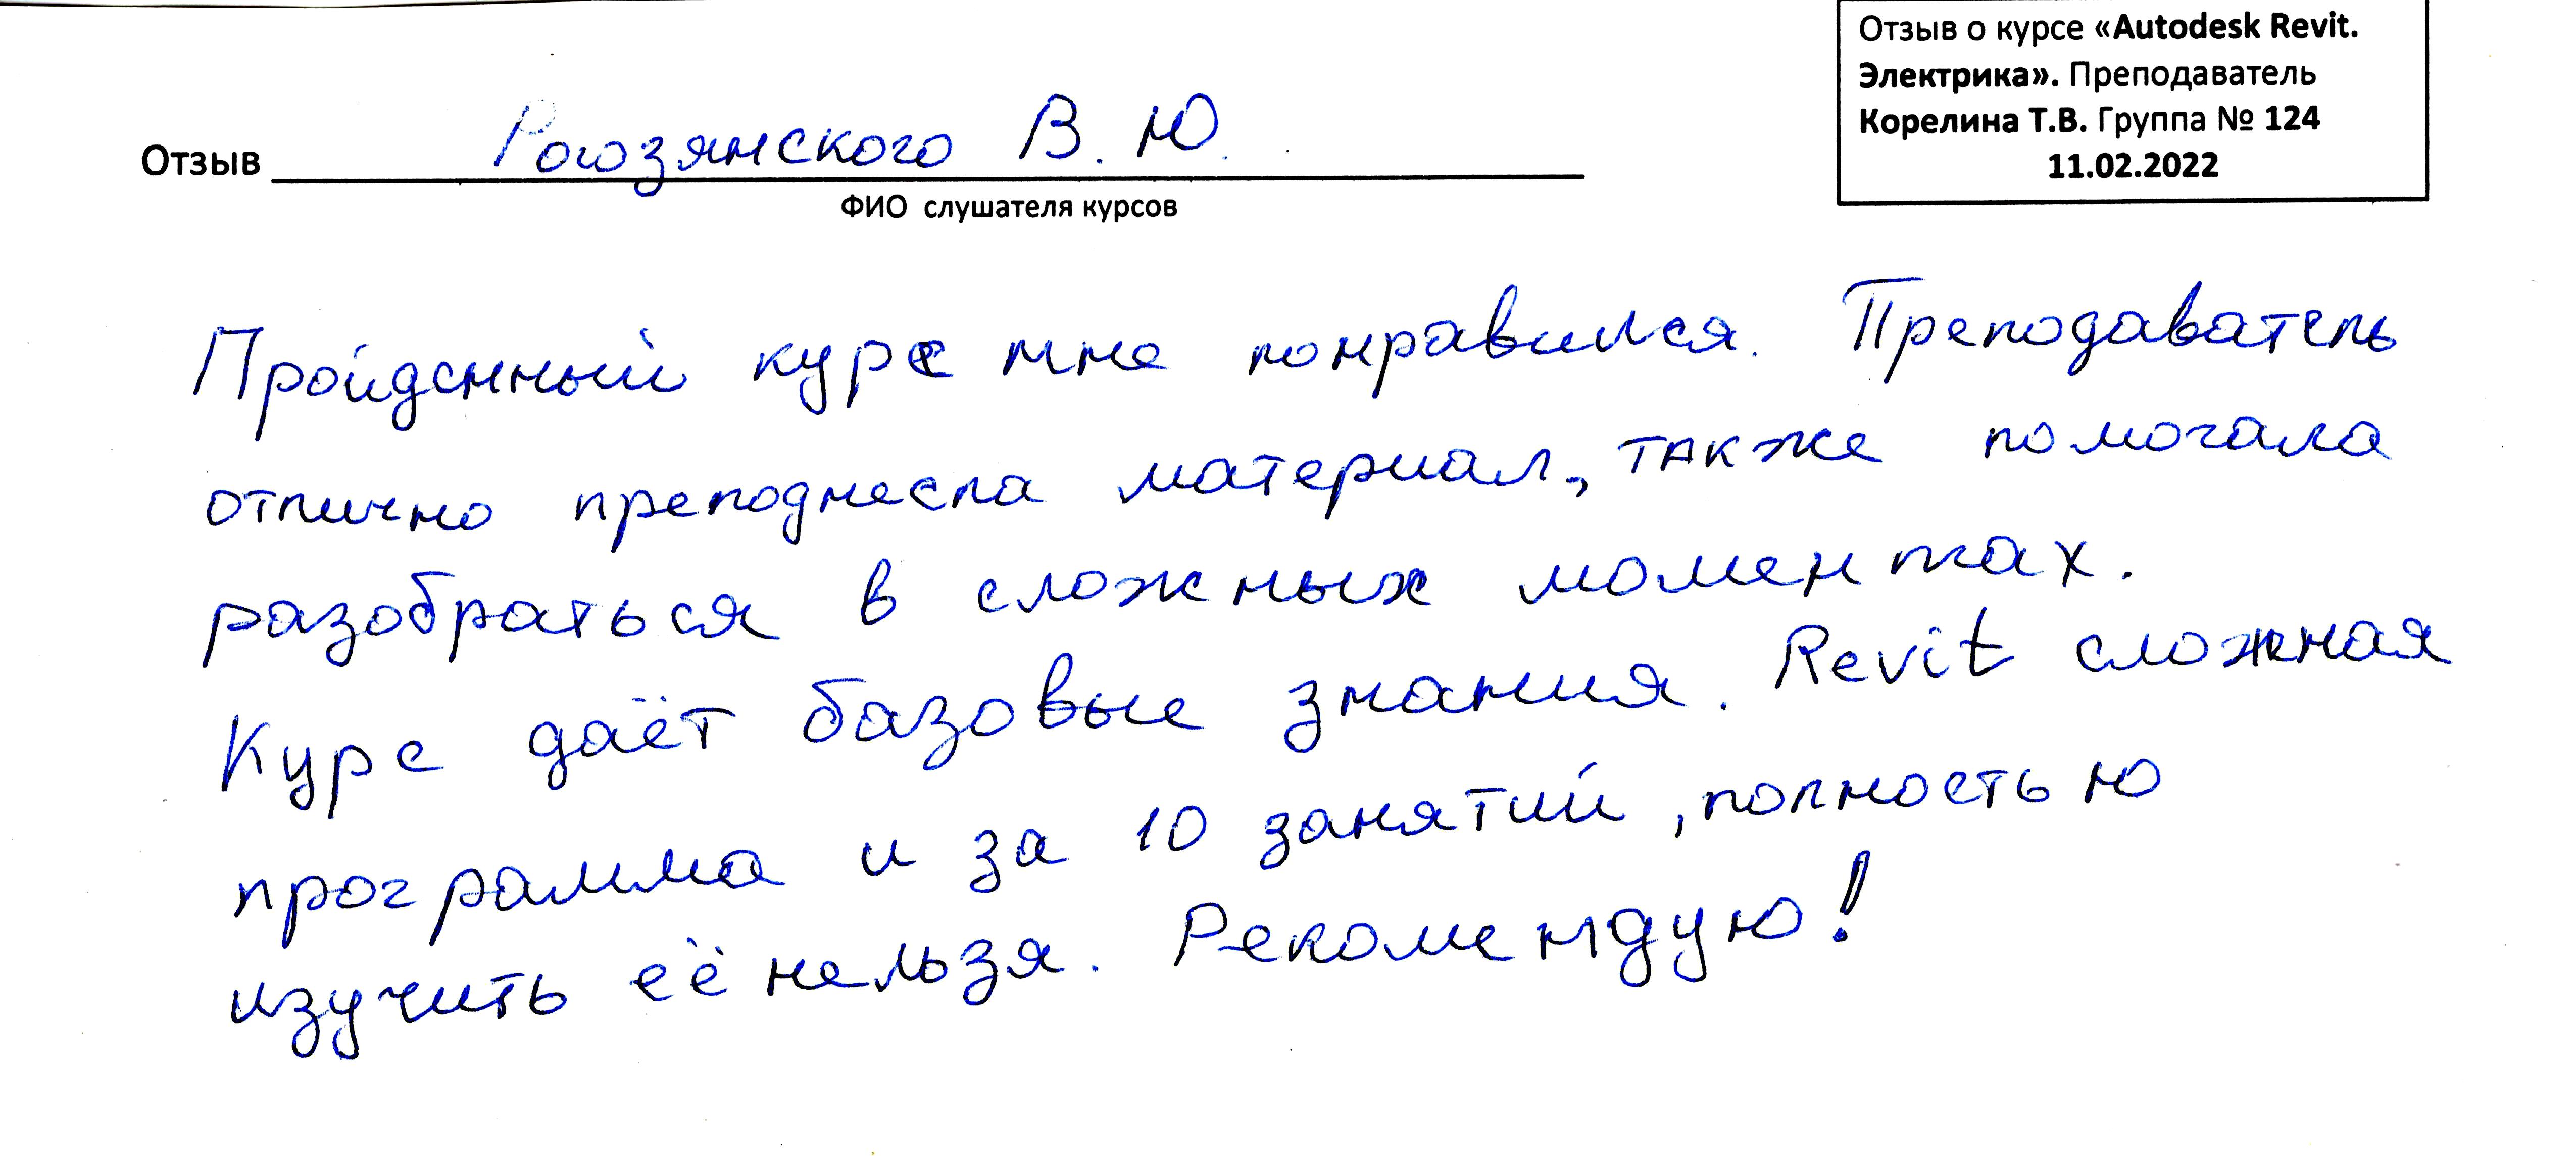 Отзыв о курсе «Autodesk Revit.
Электрика». Преподаватель
Корелина Т.В. Группа № 124
11.02.2022
Отзыв Рогозянского В. Ю.
ФИО слушателя курсов
Пройденный курс мне понравился. Преподаватель
отлично преподнесла материал, также помогала
разобраться в сложных моментах.
Курс даёт базовые знания. Revit сложная
программа и за 10 занятий, полностью
изучить её нельзя. Рекомендую!